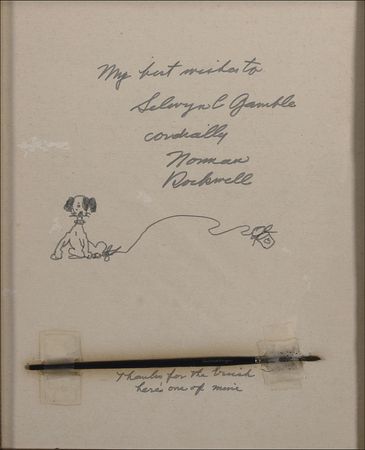 My best wishes to
Selwyn C Gamble
cordially
Norman
Rockwell
Thanks for the brush
here's one of mine